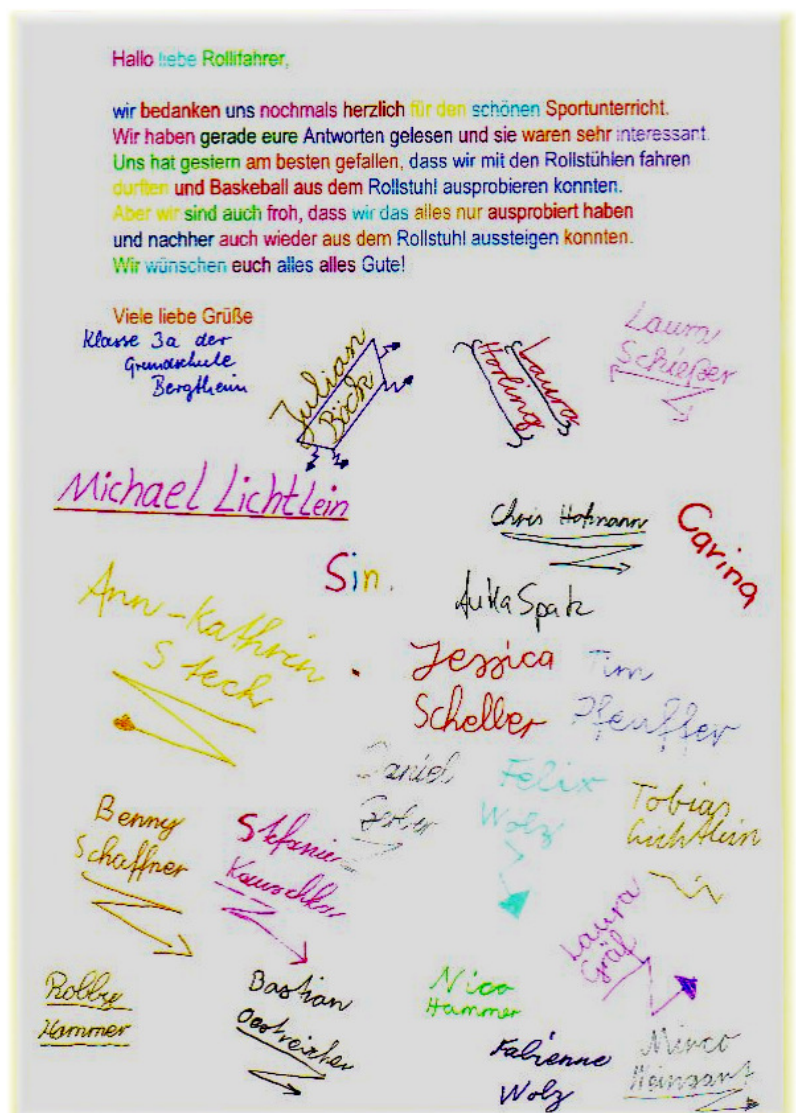 Hallo liebe Rollifahrer,
wir bedanken uns nochmals herzlich für den schönen Sportunterricht.
Wir haben gerade eure Antworten gelesen und sie waren sehr interessant.
Uns hat gestern am besten gefallen, dass wir mit den Rollstühlen fahren
durften und Baskeball aus dem Rollstuhl ausprobieren konnten.
Aber wir sind auch froh, dass wir das alles nur ausprobiert haben
und nachher auch wieder aus dem Rollstuhl aussteigen konnten.
Wir wünschen euch alles alles Gute!
Viele liebe Grüße
Klasse 3a der
Grundschule
Bergtheim
Julian
Böck
Laura
Laura
Schießer
Michael Lichtlein
Chris Hofmann
Carina
Sin.
Ann-Kathrin
Steck
Spatz
Jessica
Scheller
Tim
Pfeuffer
Daniel
Felix
Wolz
Tobias
Lichtlein
Benny
Schaffner
Stefanie
Laura
Gräf
Robby
Hammer
Bastian
Oestreicher
Nico
Hammer
Fabienne
Wolz
Mirco